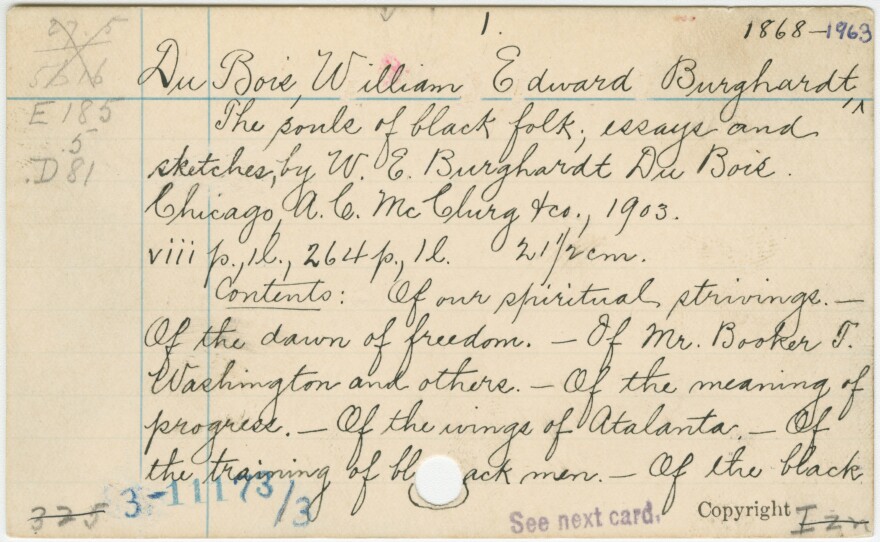 1.
1868-1963
27.5
Du Bois, William Edward Burghardt,
E185
.5
.D81
The souls of black folk; essays and
sketches, by W. E. Burghardt Du Bois.
Chicago, A. C. McClurg & co., 1903.
viii p., 1 l., 264 p., 1 l. 21 1/2 cm.
Contents: Of our spiritual strivings. —
Of the dawn of freedom. — Of Mr. Booker T.
Washington and others. — Of the meaning of
progress. — Of the wings of Atalanta. — Of
the training of black men. — Of the black
325
3-11173/3
See next card.
Copyright